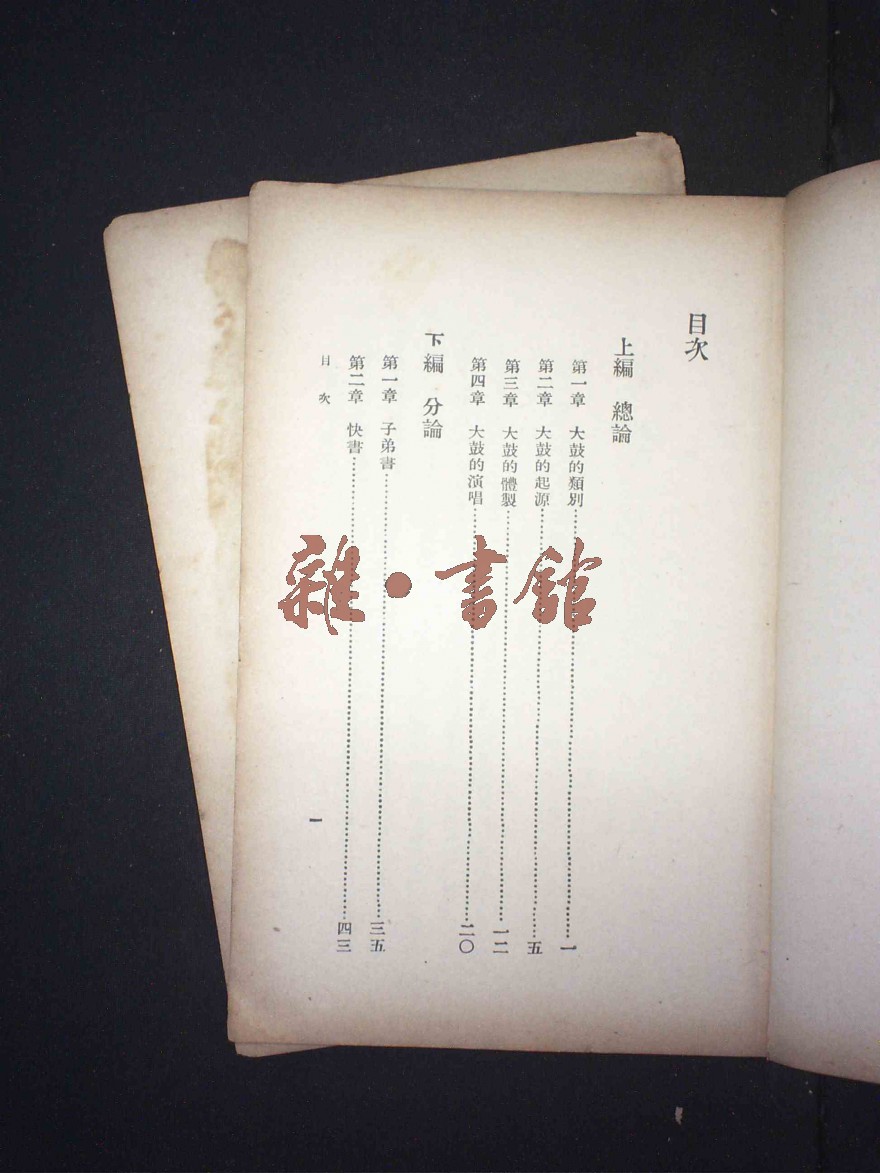 目次
上編 總論
第一章 大鼓的類別……一
第二章 大鼓的起源……五
第三章 大鼓的體製……一二
第四章 大鼓的演唱……二〇
下編 分論
第一章 子弟書……三五
第二章 快書……四三
目次 一
雜·書館